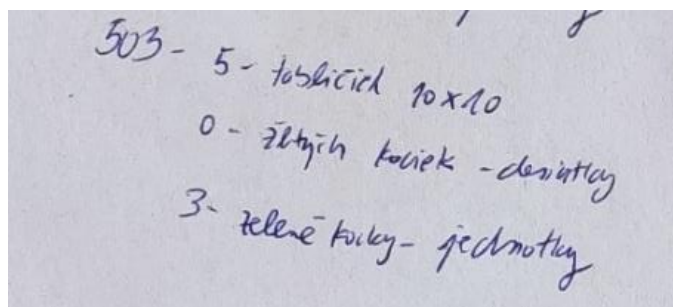 503 - 5 - tabličiek 10x10
0 - žltých kociek - desiatky
3 - zelené kocky - jednotky